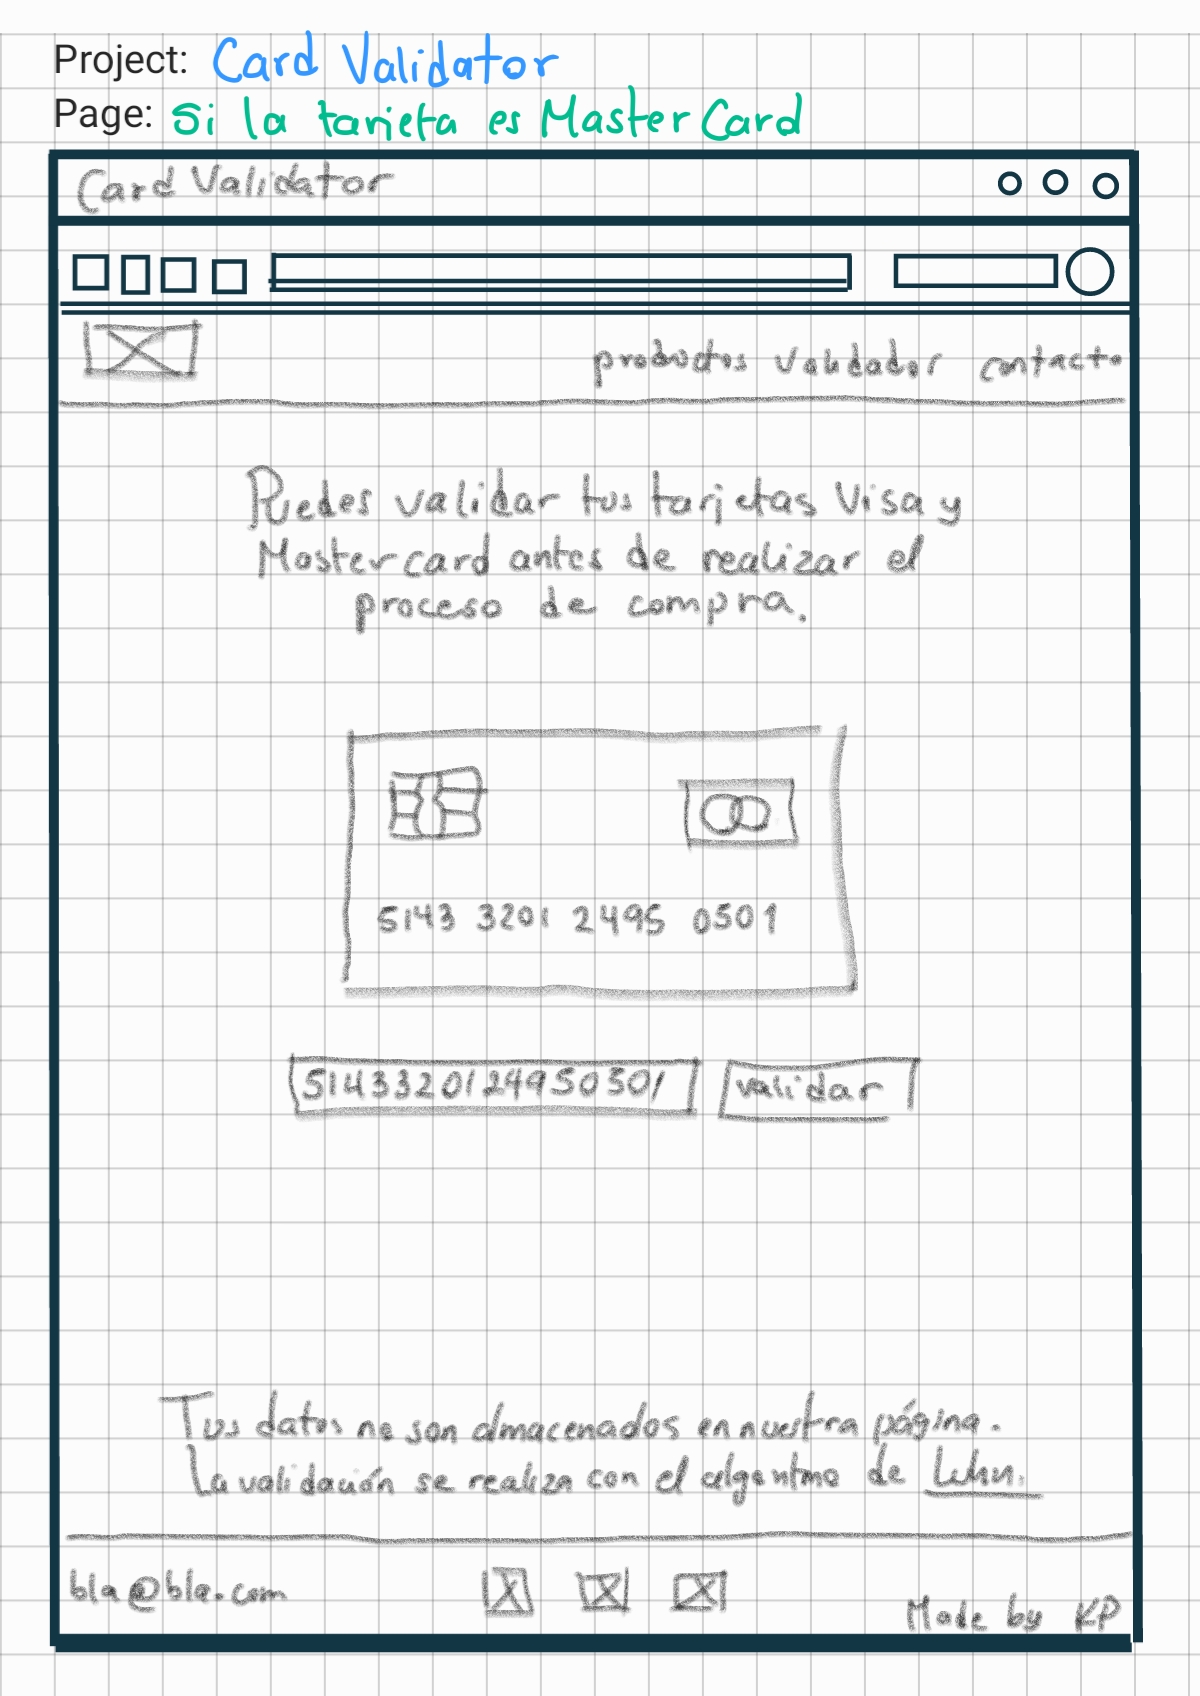 Project: Card Validator
Page: Si la tarjeta es MasterCard
Card Validator
productos validador contacto
Puedes validar tus tarjetas Visa y
Mastercard antes de realizar el
proceso de compra.
5143 3201 2495 0501
5143320124950501
validar
Tus datos no son almacenados en nuestra página.
La validación se realiza con el algoritmo de Luhn.
bla@bla.com
Made by KP